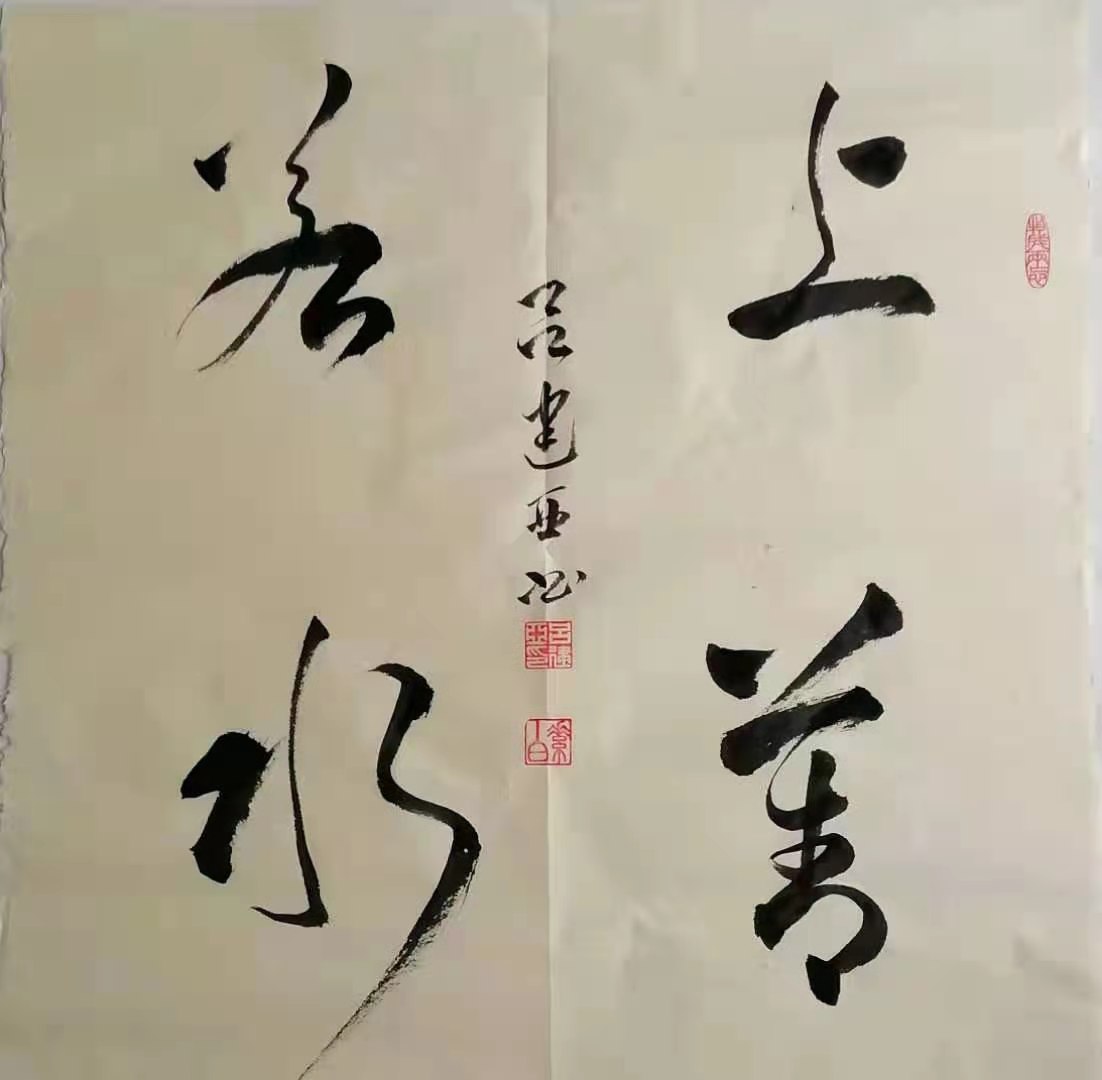 上善
若水
吕建亚书